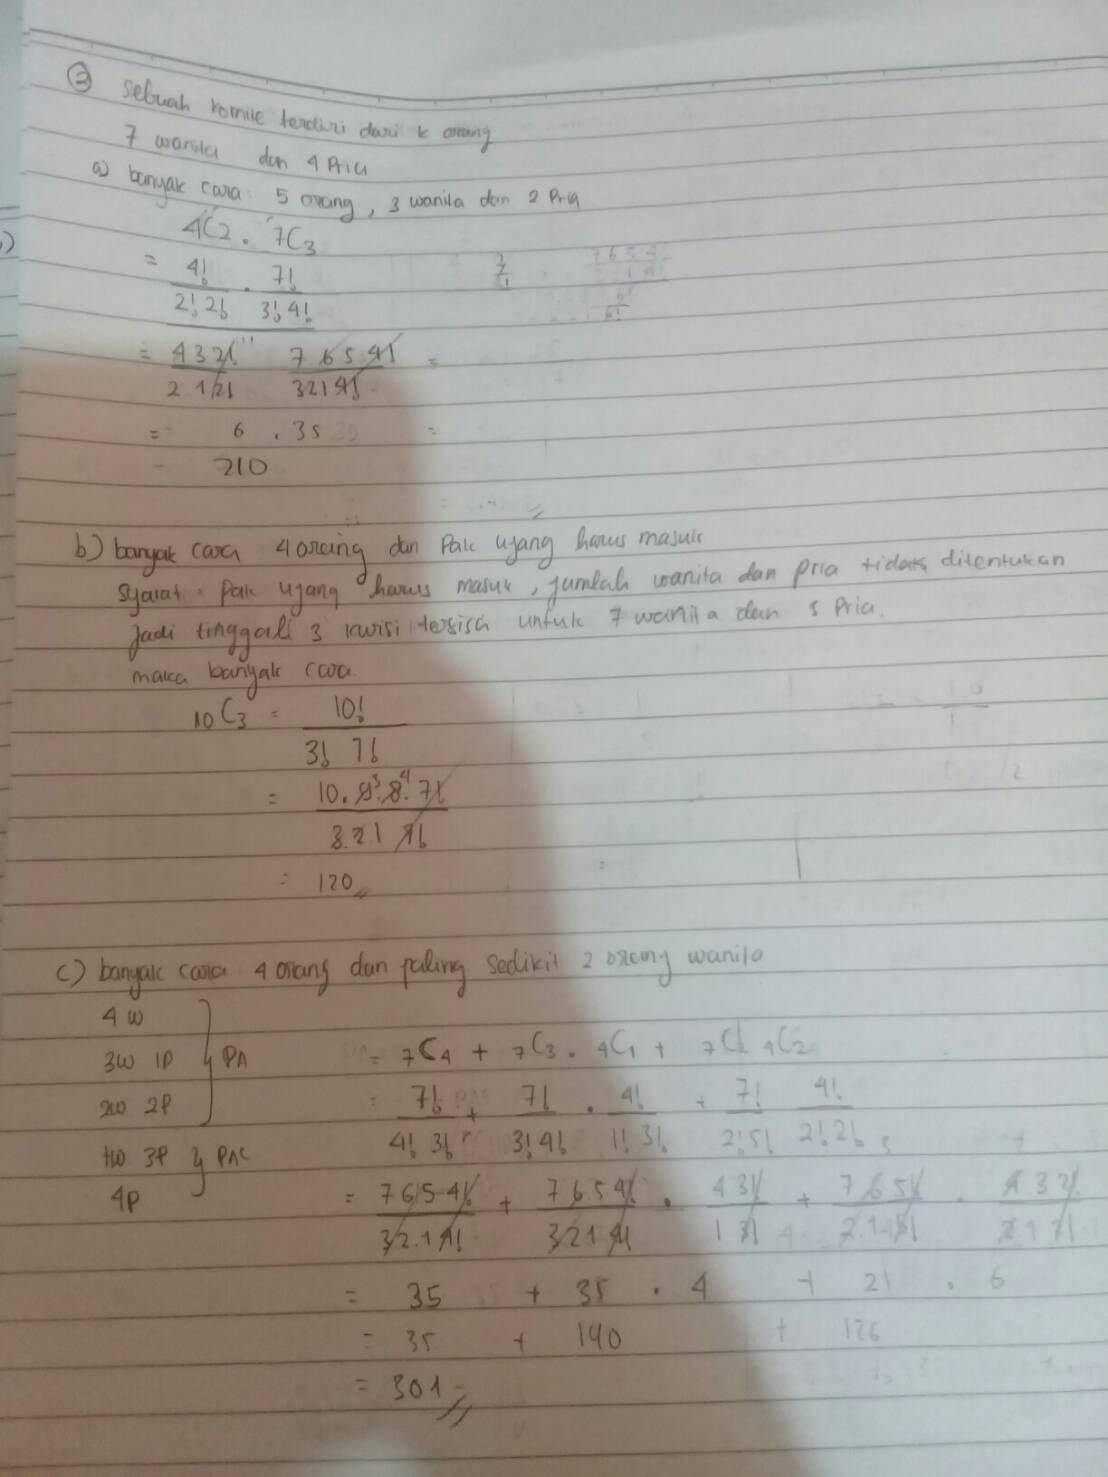 ③ Sebuah komite terdiri dari k orang
7 wanita dan 4 Pria
a) banyak cara : 5 orang, 3 wanita dan 2 Pria
4C2 . 7C3
= 4!/(2! 2!) . 7!/(3! 4!)
= 4 3 2!/(2 1 2!) 7 6 5 4!/(3 2 1 4!) =
= 6 . 35 =
210
b) banyak cara 4 orang dan Pak ujang harus masuk
Syarat : Pak ujang harus masuk, jumlah wanita dan pria tidak ditentukan
Jadi tinggal 3 kursi tersisa untuk 7 wanita dan 3 Pria.
maka banyak cara
10C3 = 10!/(3! 7!)
= 10. 9. 8. 7!/(3. 2 1 7!)
= 120
c) banyak cara 4 orang dan paling sedikit 2 orang wanita
4 W
3W 1P } PA = 7C4 + 7C3 . 4C1 + 7C2 4C2
2W 2P = 7!/(4! 3!) + 7!/(3! 4!) . 4!/(1! 3!) + 7!/(2! 5!) 4!/(2! 2!)
1W 3P } PAC
4P = 7 6 5 4!/(3 2. 1 4!) + 7 6 5 4!/(3 2 1 4!) . 4 3!/(1 3!) + 7 6 5!/(2. 1 5!) . 4 3 2!/(2 1 2!)
= 35 + 35 . 4 + 21 . 6
= 35 + 140 + 126
= 301